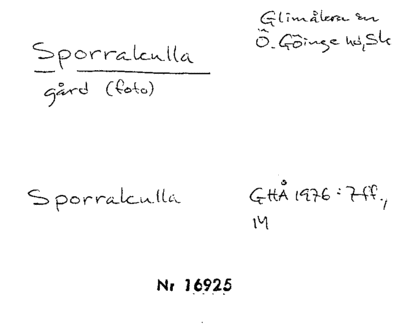 Sporrakulla
gård (foto)
Glimåkra sn
Ö. Göinge hd, Sk
Sporrakulla
GHÅ 1976: 7ff.,
14
Nr 16925